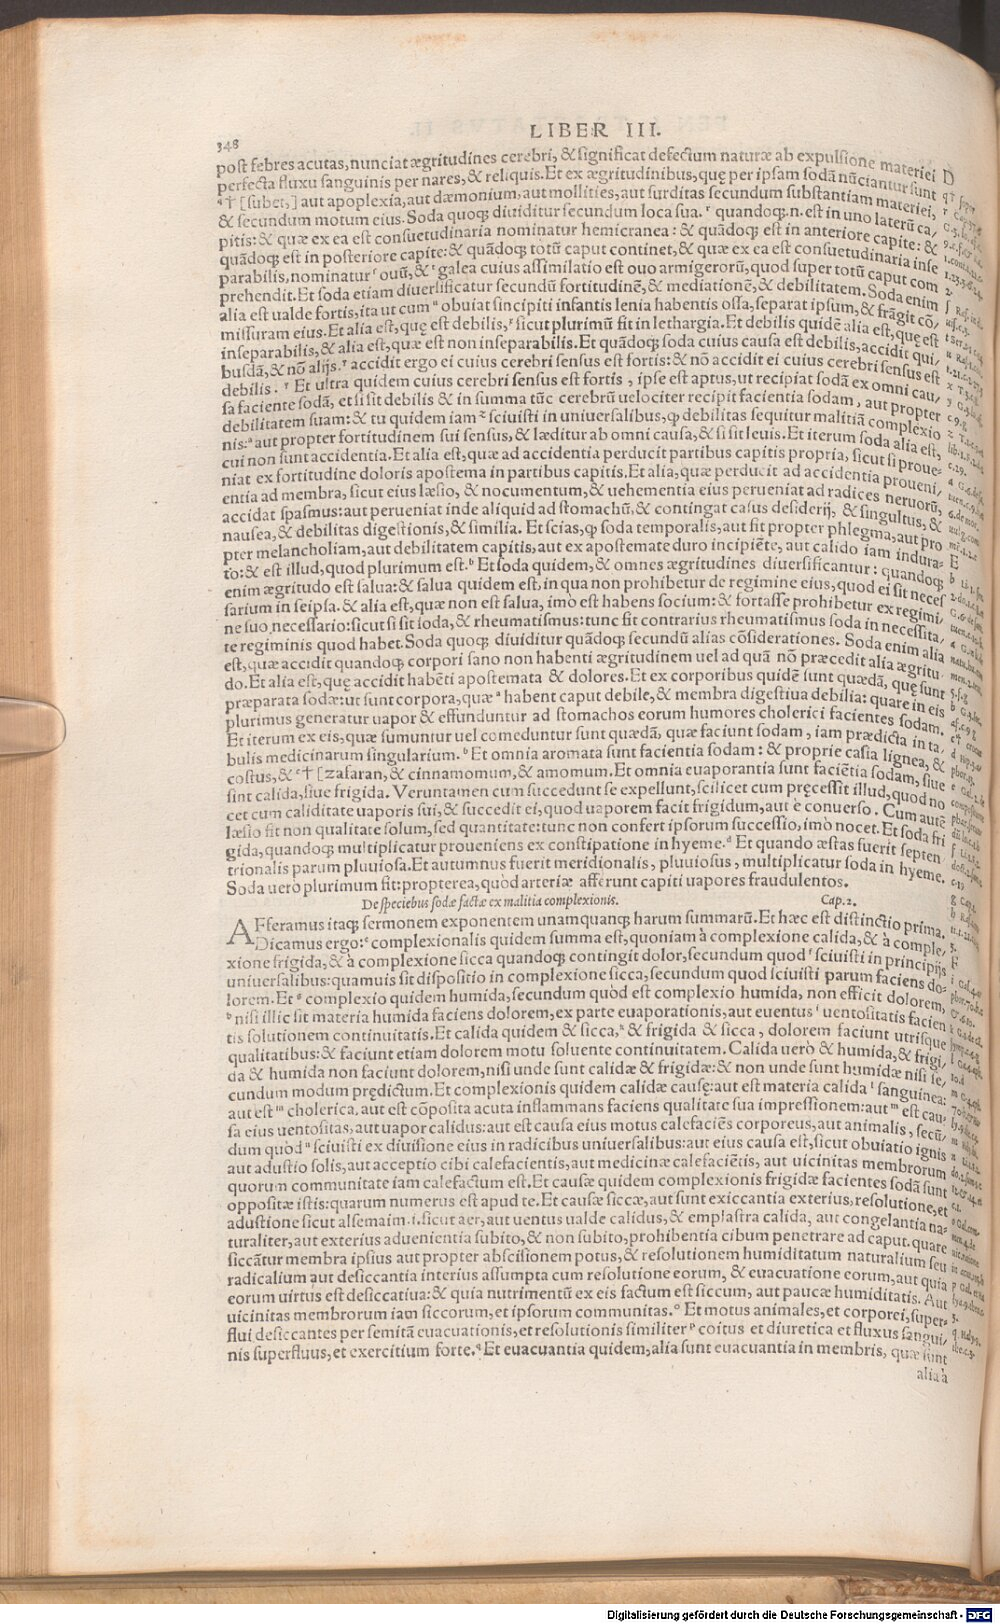 348
LIBER III.
post febres acutas, nunciat ægritudines cerebri, & significat defectum naturæ ab expulsione materiei D
perfecta fluxu sanguinis per nares, & reliquis. Et ex ægritudinibus, quę per ipsam sodã nũciantur sunt
q† [subet,] aut apoplexia, aut dæmonium, aut mollities, aut surditas secundum substantiam materiei,
& secundum motum eius. Soda quoq; diuiditur secundum loca sua. r quandoq;.n. est in uno laterũ ca/
pitis: & quæ ex ea est consuetudinaria nominatur hemicranea: & quãdoq; est in anteriore capite: &
quãdoq; est in posteriore capite: & quãdoq; totũ caput continet, & quæ ex ea est consuetudinaria inse
parabilis, nominatur ſ ouũ, & t galea cuius assimilatio est ouo armigerorũ, quod super totũ caput com
prehendit. Et soda etiam diuersificatur secundũ fortitudinẽ, & mediationẽ, & debilitatem. Soda enim
alia est ualde fortis, ita ut cum u obuiat sincipiti infantis lenia habentis ossa, separat ipsum, & frãgit cõ/
missuram eius. Et alia est, quę est debilis, x sicut plurimũ fit in lethargia. Et debilis quidẽ alia est, quę est
inseparabilis, & alia est, quæ est non inseparabilis. Et quãdoq; soda cuius causa est debilis, accidit qui/
busdã, & nõ alijs. y accidit ergo ei cuius cerebri sensus est fortis: & nõ accidit ei cuius cerebri sensus est
debilis. y Et ultra quidem cuius cerebri sensus est fortis, ipse est aptus, ut recipiat sodã ex omni cau/
sa faciente sodã, et si sit debilis & in summa tũc cerebrũ uelociter recipit facientia sodam, aut propter
debilitatem suam: & tu quidem iam z sciuisti in uniuersalibus, ꝙ debilitas sequitur malitiã complexio
nis: a aut propter fortitudinem sui sensus, & læditur ab omni causa, & si sit leuis. Et iterum soda alia est,
cui non sunt accidentia. Et alia est, quæ ad accidentia perducit partibus capitis propria, sicut si proue=
niat ex fortitudine doloris apostema in partibus capitis. Et alia, quæ perducit ad accidentia proueni/
entia ad membra, sicut eius læsio, & nocumentum, & uehementia eius perueniat ad radices neruorũ,
accidat spasmus: aut perueniat inde aliquid ad stomachũ, & contingat casus desiderij, & singultus, &
nausea, & debilitas digestionis, & similia. Et scias, ꝙ soda temporalis, aut fit propter phlegma, aut pro
pter melancholiam, aut debilitatem capitis, aut ex apostemate duro incipiẽte, aut calido iam indura=
to: & est illud, quod plurimum est. b Et soda quidem, & omnes ægritudines diuersificantur: quandoq;
enim ægritudo est salua: & salua quidem est, in qua non prohibetur de regimine eius, quod ei sit necef
sarium in seipsa. & alia est, quæ non est salua, imò est habens socium: & fortasse prohibetur ex regimi/
ne suo necessario: sicut si sit soda, & rheumatismus: tunc fit contrarius rheumatismus soda in necessita/
te regiminis quod habet. Soda quoq; diuiditur quãdoq; secundũ alias cõsiderationes. Soda enim alia
est, quæ accidit quandoq; corpori sano non habenti ægritudinem uel ad quã nõ præcedit alia ægritu
do. Et alia est, quę accidit habẽti apostemata & dolores. Et ex corporibus quidẽ sunt quædã, quę sunt
præparata sodæ: ut sunt corpora, quæ a habent caput debile, & membra digestiua debilia: quare in eis
plurimus generatur uapor & effunduntur ad stomachos eorum humores cholerici facientes sodam.
Et iterum ex eis, quæ sumuntur uel comeduntur sunt quædã, quæ faciunt sodam, iam prædicta in ta/
bulis medicinarum singularium. b Et omnia aromata sunt facientia sodam: & proprie casia lignea, &
costus, & c† [zafaran, & cinnamomum, & amomum. Et omnia euaporantia sunt faciẽtia sodam, siue
sint calida, siue frigida. Veruntamen cum succedunt se expellunt, scilicet cum pręcessit illud, quod no
cet cum caliditate uaporis sui, & succedit ei, quod uaporem facit frigidum, aut è conuerso. Cum autẽ
læsio fit non qualitate solum, sed quantitate: tunc non confert ipsorum successio, imò nocet. Et soda fri
gida, quandoq; multiplicatur proueniens ex constipatione in hyeme. d Et quando æstas fuerit septen
trionalis parum pluuiosa. Et autumnus fuerit meridionalis, pluuiosus, multiplicatur soda in hyeme.
Soda uero plurimum fit: propterea, quòd arteriæ afferunt capiti uapores fraudulentos.
De speciebus sodæ factæ ex malitia complexionis. Cap. 2.
AFferamus itaq; sermonem exponentem unamquanq; harum summarũ. Et hæc est distinctio prima.
Dicamus ergo: e complexionalis quidem summa est, quoniam à complexione calida, & à comple/
xione frigida, & à complexione sicca quandoq; contingit dolor, secundum quod f sciuisti in principijs
uniuersalibus: quamuis sit dispositio in complexione sicca, secundum quod sciuisti parum faciens do=
lorem. Et g complexio quidem humida, secundum quòd est complexio humida, non efficit dolorem,
h nisi illic sit materia humida faciens dolorem, ex parte euaporationis, aut euentus i uentositatis facien
tis solutionem continuitatis. Et calida quidem & sicca, k & frigida & sicca, dolorem faciunt utrisque
qualitatibus: & faciunt etiam dolorem motu soluente continuitatem. Calida uerò & humida, & frigi/
da & humida non faciunt dolorem, nisi unde sunt calidæ & frigidæ: & non unde sunt humidæ nisi se/
cundum modum prędictum. Et complexionis quidem calidæ causę: aut est materia calida l sanguinea:
aut est m cholerica, aut est cõposita acuta inflammans faciens qualitate sua impressionem: aut m est cau=
sa eius uentositas, aut uapor calidus: aut est causa eius motus calefaciẽs corporeus, aut animalis, secũ/
dum quòd n sciuisti ex diuisione eius in radicibus uniuersalibus: aut eius causa est, sicut obuiatio ignis
aut adustio solis, aut acceptio cibi calefacientis, aut medicinæ calefaciẽtis, aut uicinitas membrorum
quorum communitate iam calefactum est. Et causæ quidem complexionis frigidæ facientes sodã sunt
oppositæ istis: quarum numerus est apud te. Et causæ siccæ, aut sunt exiccantia exterius, resolutione, et
adustione sicut alsemaim. i. sicut aer, aut uentus ualde calidus, & emplastra calida, aut congelantia na=
turaliter, aut exterius aduenientia subito, & non subito, prohibentia cibum penetrare ad caput. quare
siccãtur membra ipsius aut propter abscisionem potus, & resolutionem humiditatum naturalium seu
radicalium aut desiccantia interius assumpta cum resolutione eorum, & euacuatione eorum, aut quia
eorum uirtus est desiccatiua: & quia nutrimentũ ex eis factum est siccum, aut paucæ humiditatis. Aut
uicinitas membrorum iam siccorum, et ipsorum communitas. o Et motus animales, et corporei, super=
flui desiccantes per semitã euacuationis, et resolutionis similiter p coitus et diuretica et fluxus sangui/
nis superfluus, et exercitium forte. q Et euacuantia quidem, alia sunt euacuantia in membris, quæ sunt
alia à
E
F